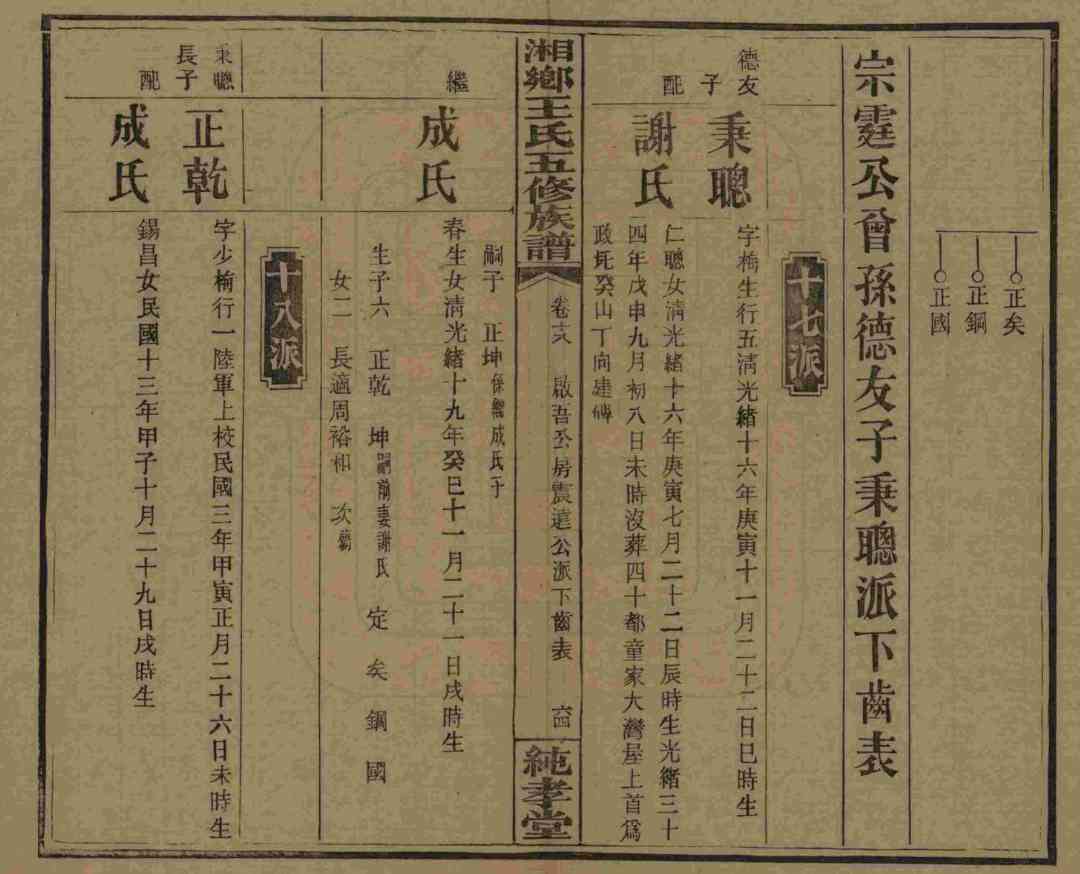 正矣
正鋼
正國
宗霆公曾孫德友子秉聰派下齒表
十七派
德友子
秉聰
字椅生行五清光緒十六年庚寅十一月二十二日巳時生
配
謝氏
仁聰女清光緒十六年庚寅七月二十二日辰時生光緒三十
四年戊申九月初八日未時沒葬四十都童家大灣屋上首爲
政圫癸山丁向建碑
湘鄉王氏五修族譜
卷十八
啟吾公房震遠公派下齒表
純孝堂
嗣子 正坤係繼成氏子
繼
成氏
春生女清光緒十九年癸巳十一月二十一日戌時生
生子六 正乾 坤嗣前妻謝氏 定 矣 鋼 國
女二 長適周裕和 次殤
十八派
秉聰長子
正乾
字少榆行一陸軍上校民國三年甲寅正月二十六日未時生
配
成氏
錫昌女民國十三年甲子十月二十九日戌時生